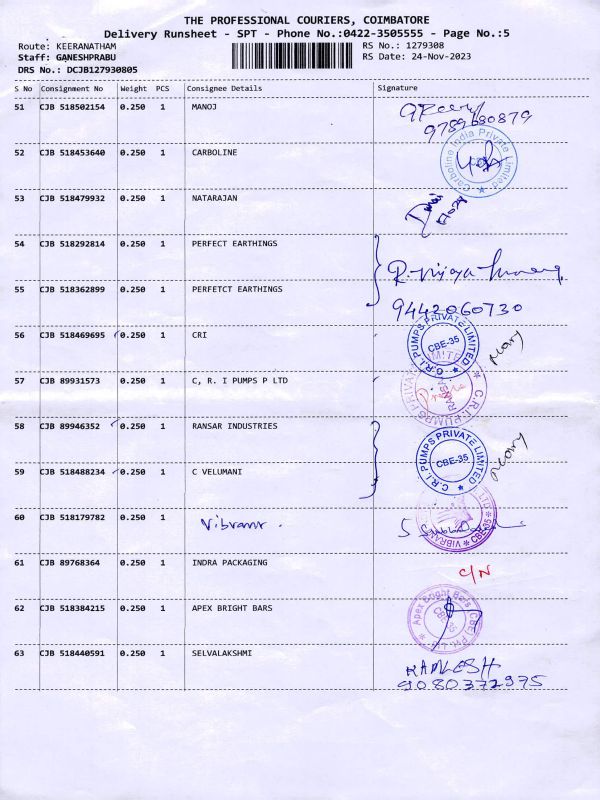 THE PROFESSIONAL COURIERS, COIMBATORE
Delivery Runsheet - SPT - Phone No.:0422-3505555 - Page No.:5
Route: KEERANATHAM RS No.: 1279308
Staff: GANESHPRABU RS Date: 24-Nov-2023
DRS No.: DCJB127930805
S No Consignment No Weight PCS Consignee Details Signature
51 CJB 518502154 0.250 1 MANOJ
9789680879
52 CJB 518453640 0.250 1 CARBOLINE
Carboline India Private Limited
53 CJB 518479932 0.250 1 NATARAJAN
54 CJB 518292814 0.250 1 PERFECT EARTHINGS
55 CJB 518362899 0.250 1 PERFETCT EARTHINGS
9442060730
56 CJB 518469695 0.250 1 CRI
C.R.I. PUMPS PRIVATE LIMITED CBE-35 Mary
57 CJB 89931573 0.250 1 C, R. I PUMPS P LTD
58 CJB 89946352 0.250 1 RANSAR INDUSTRIES
C.R.I. PUMPS PRIVATE LIMITED CBE-35 Mary
59 CJB 518488234 0.250 1 C VELUMANI
60 CJB 518179782 0.250 1 Vibrant.
61 CJB 89768364 0.250 1 INDRA PACKAGING C/N
62 CJB 518384215 0.250 1 APEX BRIGHT BARS
Apex Bright Bars (CBE) Pvt. Ltd.
63 CJB 518440591 0.250 1 SELVALAKSHMI
KAMLESH
9080372975